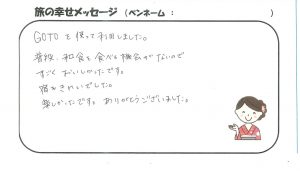 旅の幸せメッセージ （ペンネーム： ）
GOTOを使って利用しました。
普段、和食を食べる機会がないので
すごくおいしかったです。
宿もきれいでした。
楽しかったです。ありがとうございました。